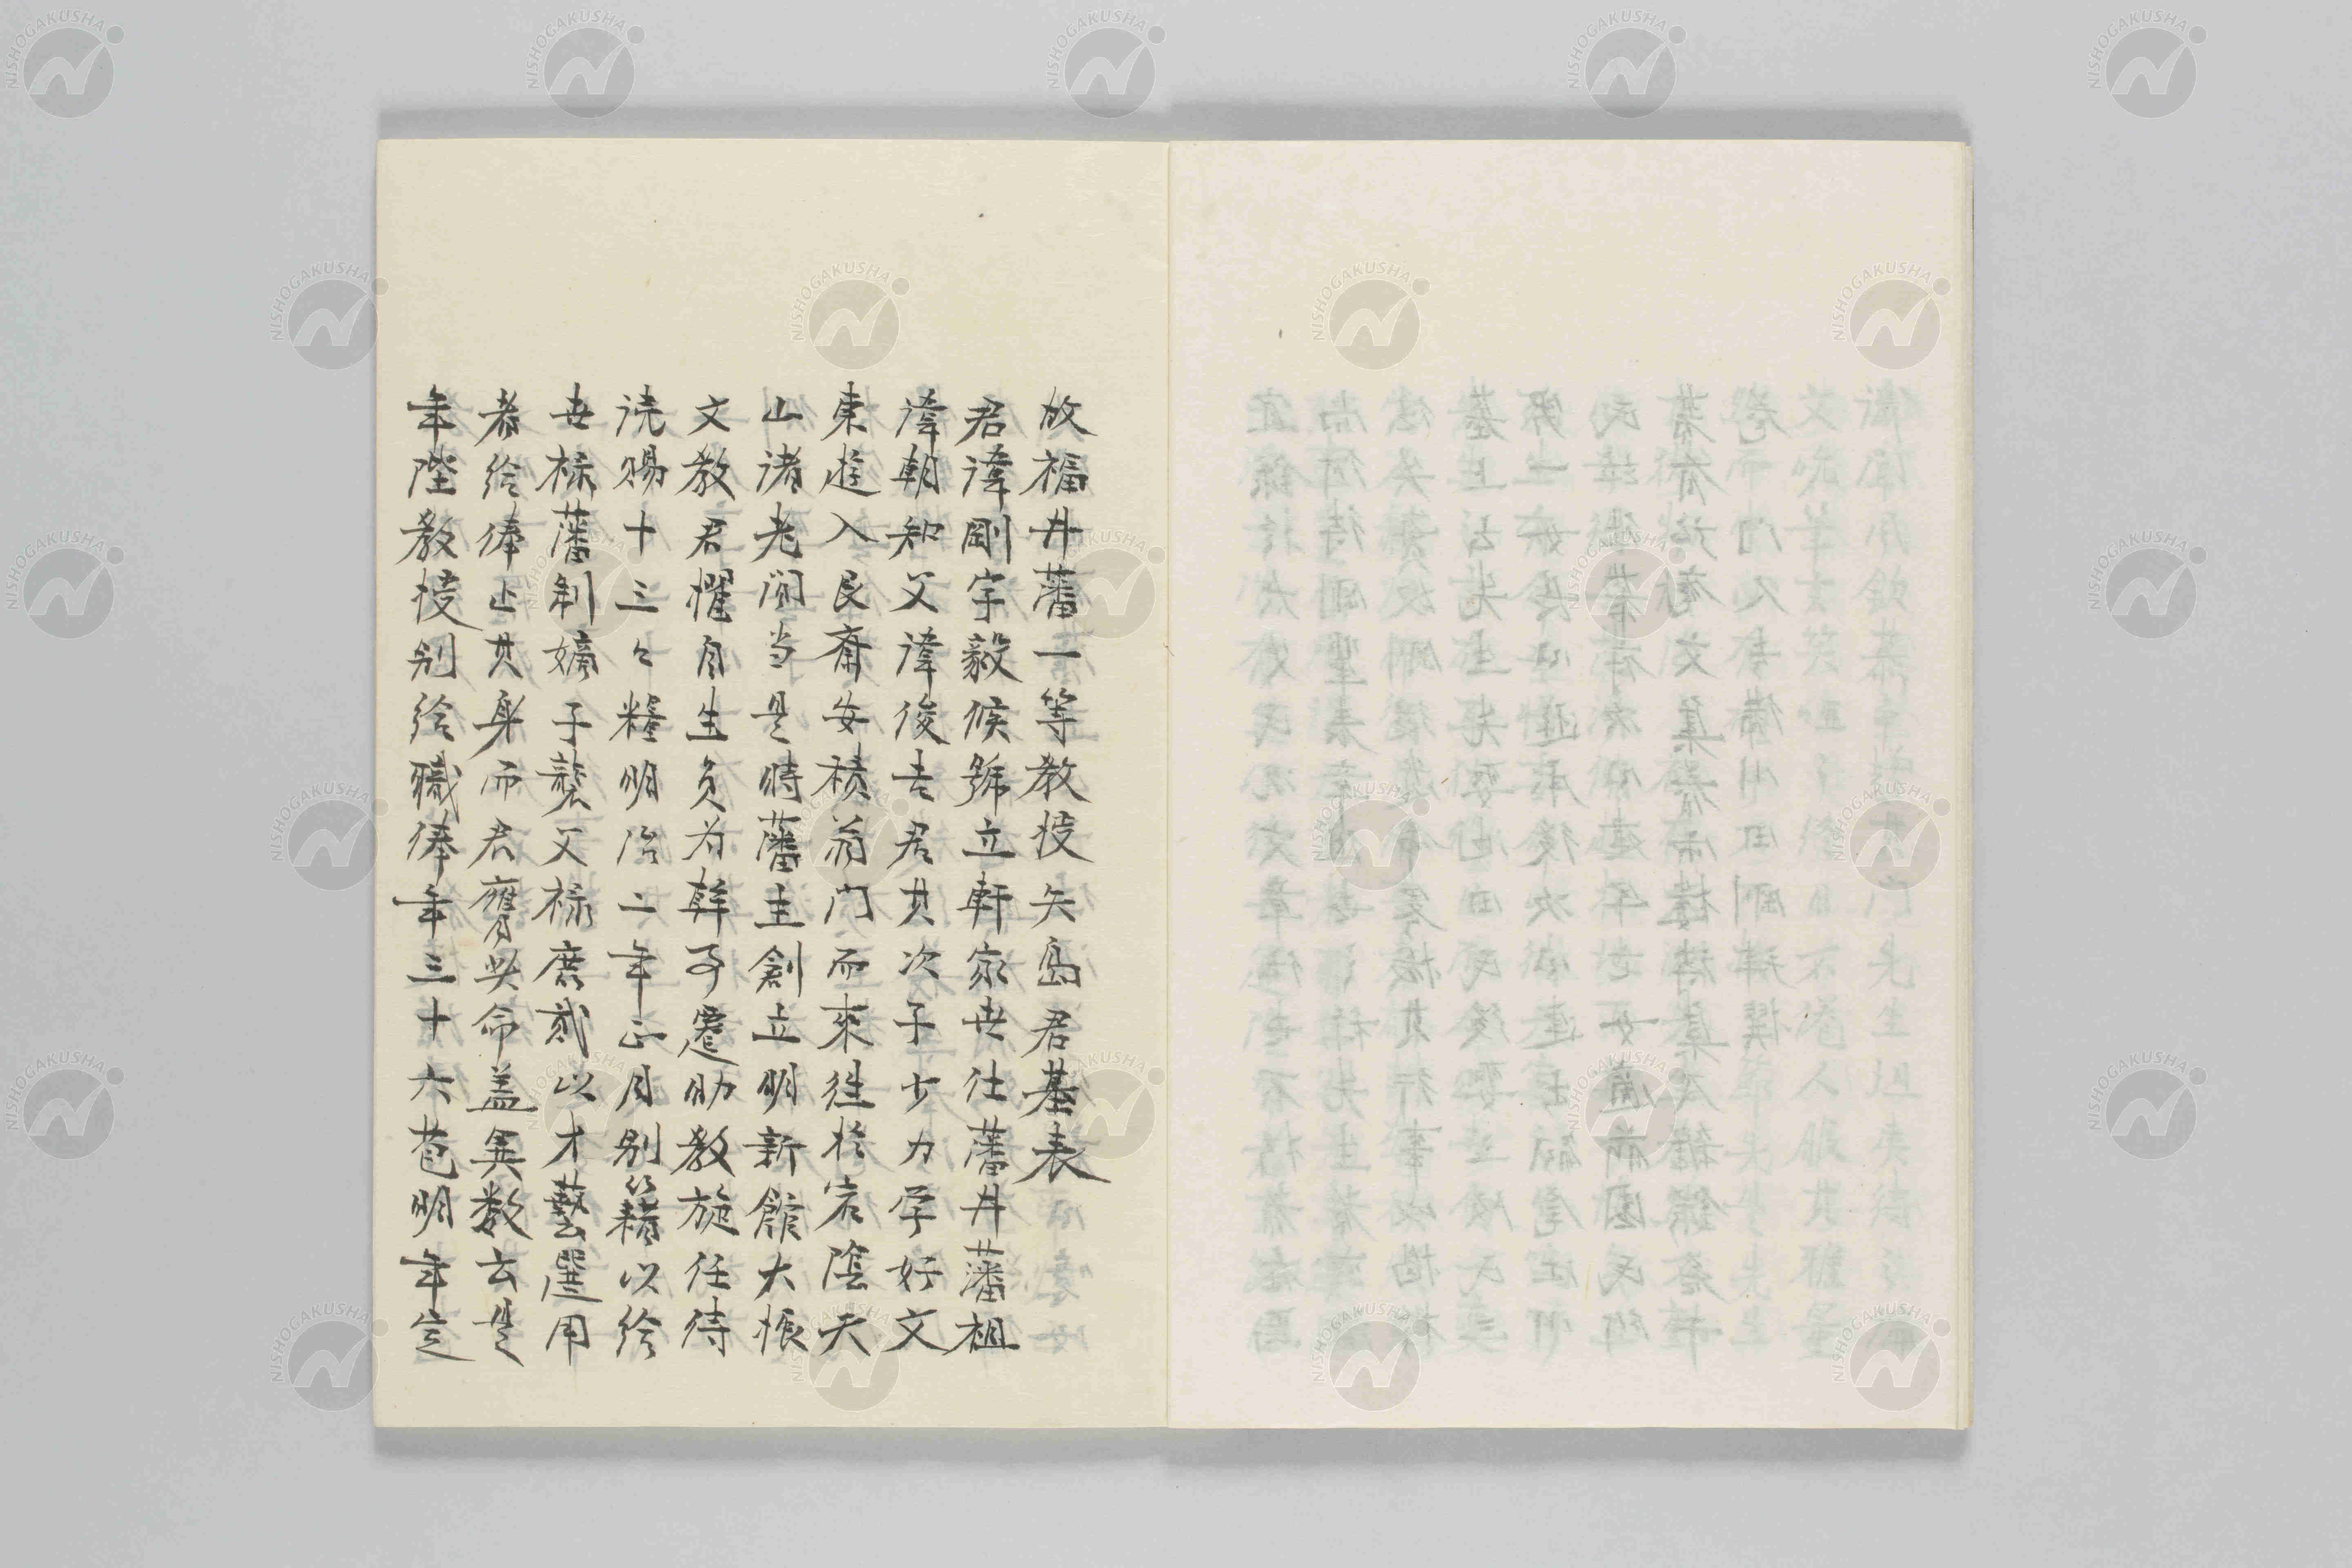 故福井藩一等教授矢島君墓表
君諱剛字毅侯號立軒家世仕藩井藩祖
諱朝知父諱俊吉君其次子少力学好文
東遊入艮斎安積翁門而來往於宕陰天
山諸老間当是時藩主創立明新館大振
文教君擢自生員为幹事遷助教施任待
読賜十三口糧明治二年正月别籍以給
世禄藩制嫡子襲父禄庶貳以才藝選用
者給俸止其身而君膺此命盖異数云是
年陞教授别給職俸年三十六苞明年定
NISHOGAKUSHA